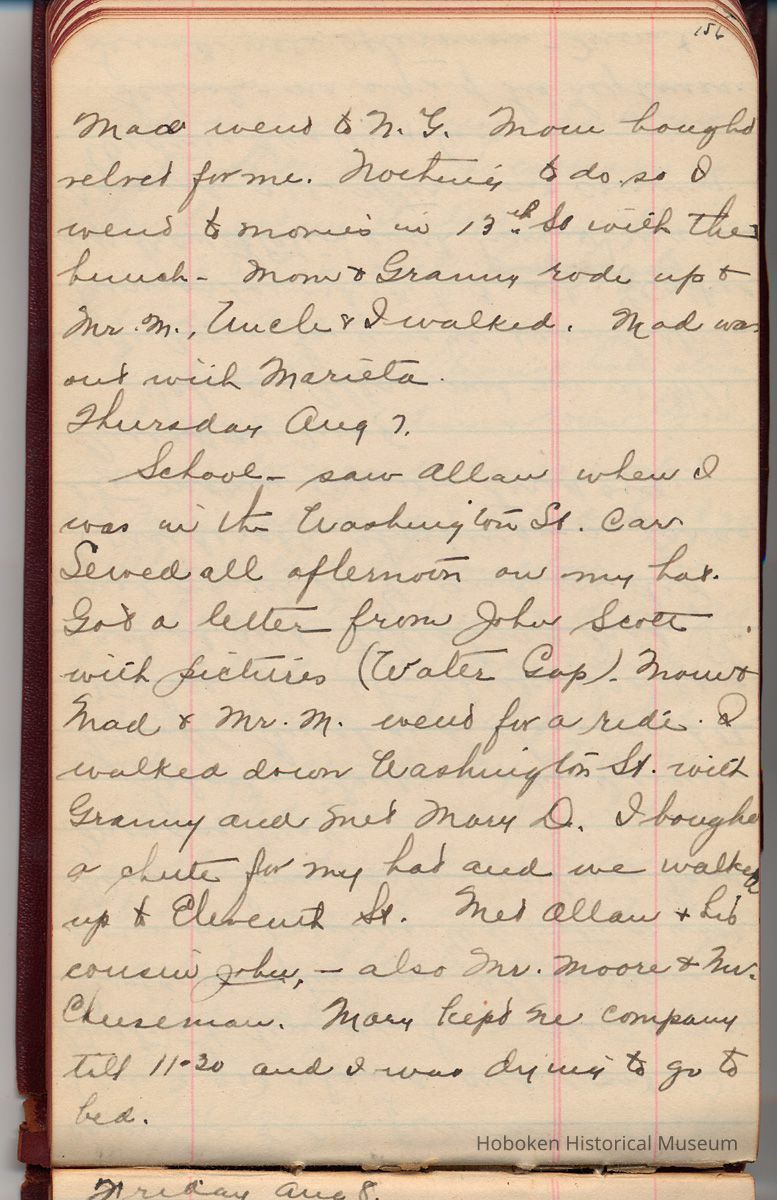 156
Mad went to N. G. Mom bought
velvet for me. Nothing to do so I
went to movies in 13th St with the
bunch - Mom & Granny rode up &
Mr. M., Uncle & I walked. Mad was
out with Marieta.
Thursday Aug 7.
School - saw Allan when I
was in the Washington St. car
Sewed all afternoon on my hat.
Got a letter from John Scott
with pictures (Water Gap). Mom &
Mad & Mr. M. went for a ride. I
walked down Washington St. with
Granny and met Mary D. I bought
a for my hat and we walked
up to Eleventh St. Met Allan & his
cousin John, - also Mr. Moore & Mr.
Cheeseman. Mary kept me company
till 11-30 and I was dying to go to
bed.
Hoboken Historical Museum
Friday Aug 8.